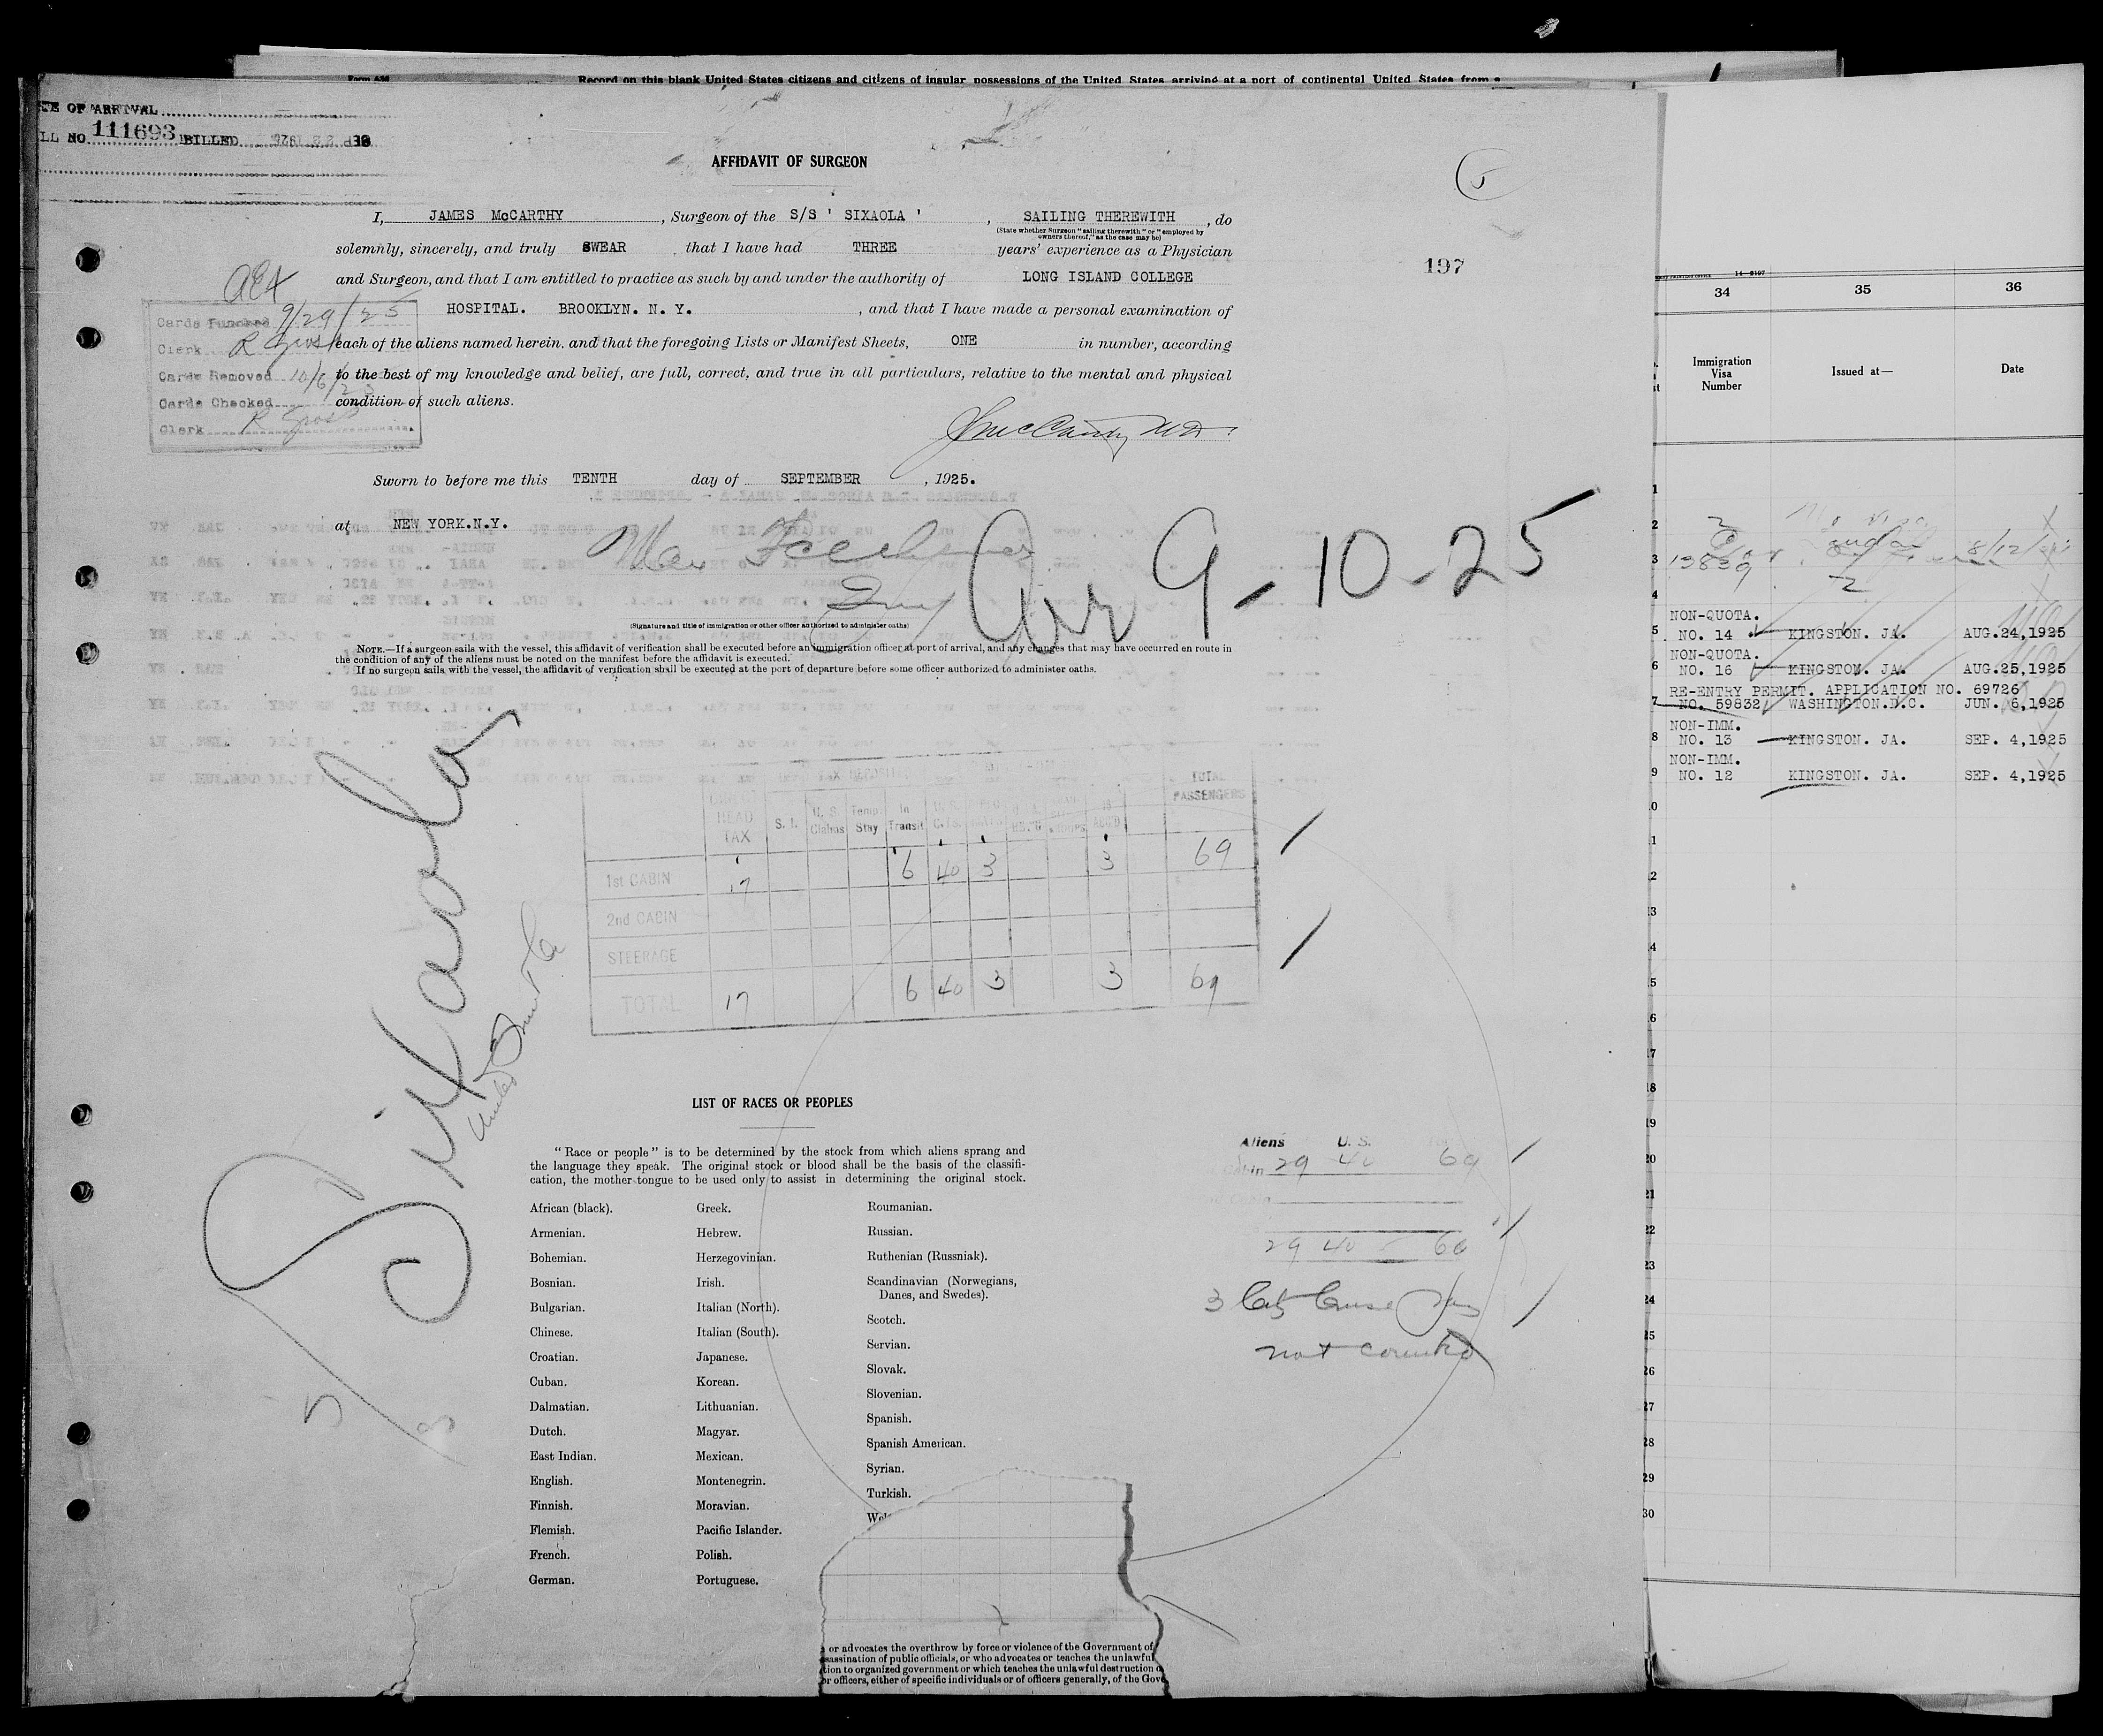 Form 630 Record on this blank United States citizens and citizens of insular possessions of the United States arriving at a port of continental United States from a
TE OF ARRIVAL
LL NO. 111693 BILLED
AFFIDAVIT OF SURGEON
5
I, JAMES McCARTHY, Surgeon of the S/S ' SIXAOLA ', SAILING THEREWITH, do
(State whether Surgeon "sailing therewith" or "employed by
owners thereof," as the case may be)
solemnly, sincerely, and truly SWEAR that I have had THREE years' experience as a Physician
197
and Surgeon, and that I am entitled to practice as such by and under the authority of LONG ISLAND COLLEGE
HOSPITAL. BROOKLYN. N. Y., and that I have made a personal examination of
each of the aliens named herein, and that the foregoing Lists or Manifest Sheets, ONE in number, according
to the best of my knowledge and belief, are full, correct, and true in all particulars, relative to the mental and physical
condition of such aliens.
Cards Punched 9/29/25
Clerk R
Cards Removed 10/6/2
Cards Checked
Clerk R
J McCarthy M.D.
Sworn to before me this TENTH day of SEPTEMBER, 1925.
at NEW YORK.N.Y.
Arr 9-10-25
(Signature and title of immigration or other officer authorized to administer oaths)
NOTE.—If a surgeon sails with the vessel, this affidavit of verification shall be executed before an immigration officer at port of arrival, and any changes that may have occurred en route in
the condition of any of the aliens must be noted on the manifest before the affidavit is executed.
If no surgeon sails with the vessel, the affidavit of verification shall be executed at the port of departure before some officer authorized to administer oaths.
Sixaola
United Fruit Co
HEAD TAX S. I. U. S. Citzns Temp. Stay In Transit U. S. TOTAL PASSENGERS
1st CABIN 17 6 40 3 3 69
2nd CABIN
STEERAGE
TOTAL 17 6 40 3 3 69
LIST OF RACES OR PEOPLES
"Race or people" is to be determined by the stock from which aliens sprang and
the language they speak. The original stock or blood shall be the basis of the classifi-
cation, the mother tongue to be used only to assist in determining the original stock.
African (black).
Armenian.
Bohemian.
Bosnian.
Bulgarian.
Chinese.
Croatian.
Cuban.
Dalmatian.
Dutch.
East Indian.
English.
Finnish.
Flemish.
French.
German.
Greek.
Hebrew.
Herzegovinian.
Irish.
Italian (North).
Italian (South).
Japanese.
Korean.
Lithuanian.
Magyar.
Mexican.
Montenegrin.
Moravian.
Pacific Islander.
Polish.
Portuguese.
Roumanian.
Russian.
Ruthenian (Russniak).
Scandinavian (Norwegians,
Danes, and Swedes).
Scotch.
Servian.
Slovak.
Slovenian.
Spanish.
Spanish American.
Syrian.
Turkish.
Aliens U. S.
29 40 69
29 40 - 69
not counted
or advocates the overthrow by force or violence of the Government of
sassination of public officials, or who advocates or teaches the unlawful
tion to organized government or which teaches the unlawful destruction o
or officers, either of specific individuals or of officers generally, of the Gove
14—8107
34 35 36
Immigration
Visa
Number
Issued at—
Date
1
2
3 13839 8/12/
4
NON-QUOTA.
5 NO. 14 KINGSTON. JA. AUG.24,1925
NON-QUOTA.
6 NO. 16 KINGSTON. JA. AUG.25,1925
RE-ENTRY PERMIT. APPLICATION NO. 69726
7 NO. 59832 WASHINGTON.D.C. JUN. 6,1925
NON-IMM.
8 NO. 13 KINGSTON. JA. SEP. 4,1925
NON-IMM.
9 NO. 12 KINGSTON. JA. SEP. 4,1925
0
1
2
3
4
5
6
7
18
19
20
21
22
23
24
25
26
27
28
29
30